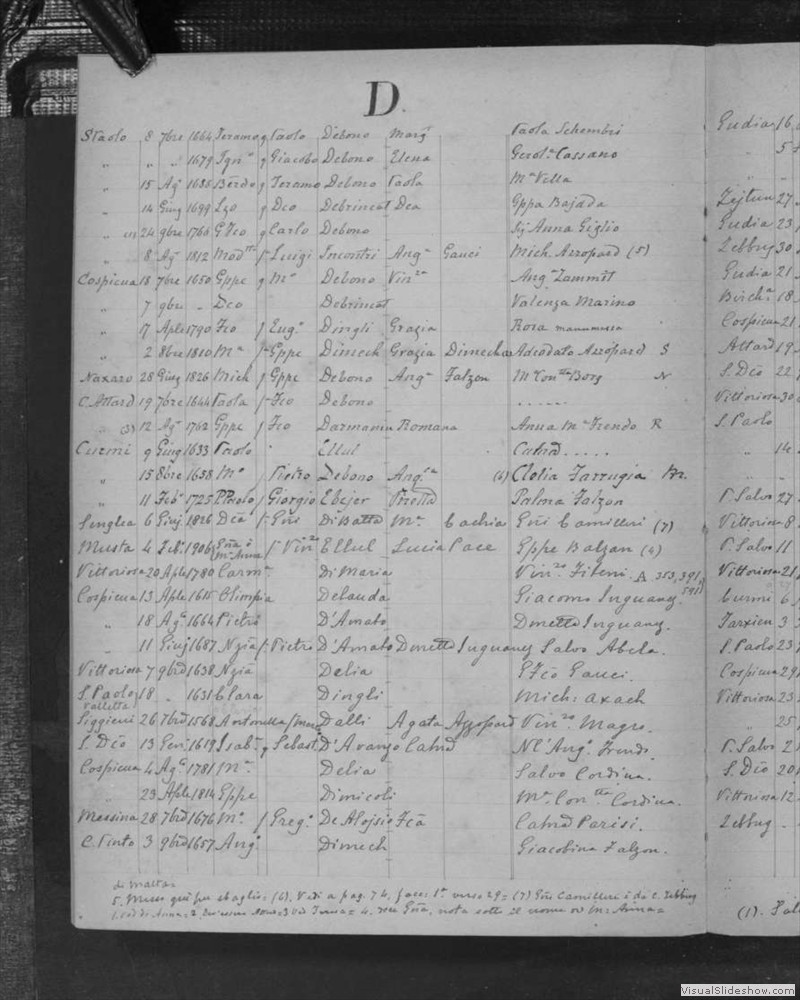 D.
S Paolo 8 7bre 1664 Teramo g Paolo Debono Marg^a Paola Schembri
" " " 1679 Ign^o g Giacobo Debono Elena Gerol^a Cassano
" 15 Ag^o 1686 Bërdo g Teramo Debono Paola M^a Vella
" 14 Giug 1699 Lzo g Dco Debrincat Dea Gppa Bajada
" 24 9bre 1760 G Fco g Carlo Debono Anna Giglio
" 8 Ag^o 1812 Luigi Incontri Ang^a Gauci Mich Azzopard (5)
Cospicua 18 7bre 1650 Gppe g M^o Debono Vin^za Ang^a Zammit
" 7 9bre " Dco Debrincat Valenza Marino
" 17 Aple 1790 Fco f Eug^o Dingli Grazia Rosa
" 2 8bre 1810 M^a f Gppe Dimech Grazia Dimech Adeodato Azzopard S
Naxaro 28 Giug 1826 Mich g Gppe Debono Ang^a Falzon M Con^tta Borg N
C. Attard 19 7bre 1644 Paola f Fco Debono ......
" (3) 12 Ag^o 1762 Gppe f Fco Darmanin Romana Anna M^a Frendo R
Curmi 9 Giug 1633 Paolo Ellul Catnd .....
" 15 8bre 1658 M^o Pietro Debono Ang^ca (6) Clelia Farrugia M.
" 11 Feb^o 1725 P Paolo f Giorgio Ebejer Palma Falzon
Senglea 6 Giuj 1826 Dca f Gni Di Batta M^a Cachia Gni Camilleri (7)
Musta 4 Feb^o 1906 M^a Anna f Vin^zo Ellul Lucia Pace Gppe Balzan (4)
Vittoriosa 20 Aple 1780 Carm^a Di Maria Vin^zo Fiteni A 353, 391,
591
Cospicua 13 Aple 1615 Olimpia Delauda Giacomo Inguanez
" 18 Ag^o 1664 Pietri D'Amato Donetto Inguanez.
" 11 Giuj 1687 Nzia f Pietri D'Amato Donetta Inguanez Salvo Abela.
Vittoriosa 7 9bre 1638 Nzia Delia Gauci.
S. Paolo 18 " 1631 Clara Dingli Mich: Axach
Valletta
Siggieui 26 7bre 1568 Antonella Dalli Agata Azzopard Vin^zo Magro.
S. Dco 13 Gen 1619 Isab^a g Sebast. D'Avanzo Catnd Ang^o Frendo.
Cospicua 4 Ag^o 1781 M^a Delia Salvo Cordina.
" 23 Aple 1814 Gppe Dimicoli M^a Con^tta Cordina.
Messina 28 7bre 1676 M^o f Greg^o De Aloisio Fca Catnd Parisi.
C. Pinto 3 9bre 1657 Ang^o Dimech Giacobina Falzon.
di Malta=
5. Messo qui per sbaglio= (6). Vedi a pag. 74, facc: 1^a verso 29= (7) Gni Camilleri è da C. Zebbug
nota sotto il nome di M: Anna=
Gudia 16
5
Zejtun 27
Gudia 23
Zebbug 30
Gudia 21
Birch^a 18
Cospicua 21
Attard 19
S. Dco 22
Vittoriosa 30
S. Paolo
" 14
P. Salvo 27
Vittoriosa 8
P. Salvo 11
Vittoriosa 21
Curmi 6
Tarxien 3
S. Paolo 23
Cospicua 29
Vittoriosa 23
" 25
P. Salvo 2
S. Dco 20
Vittoriosa 12
Zebbug
(1).
VisualSlideshow.com